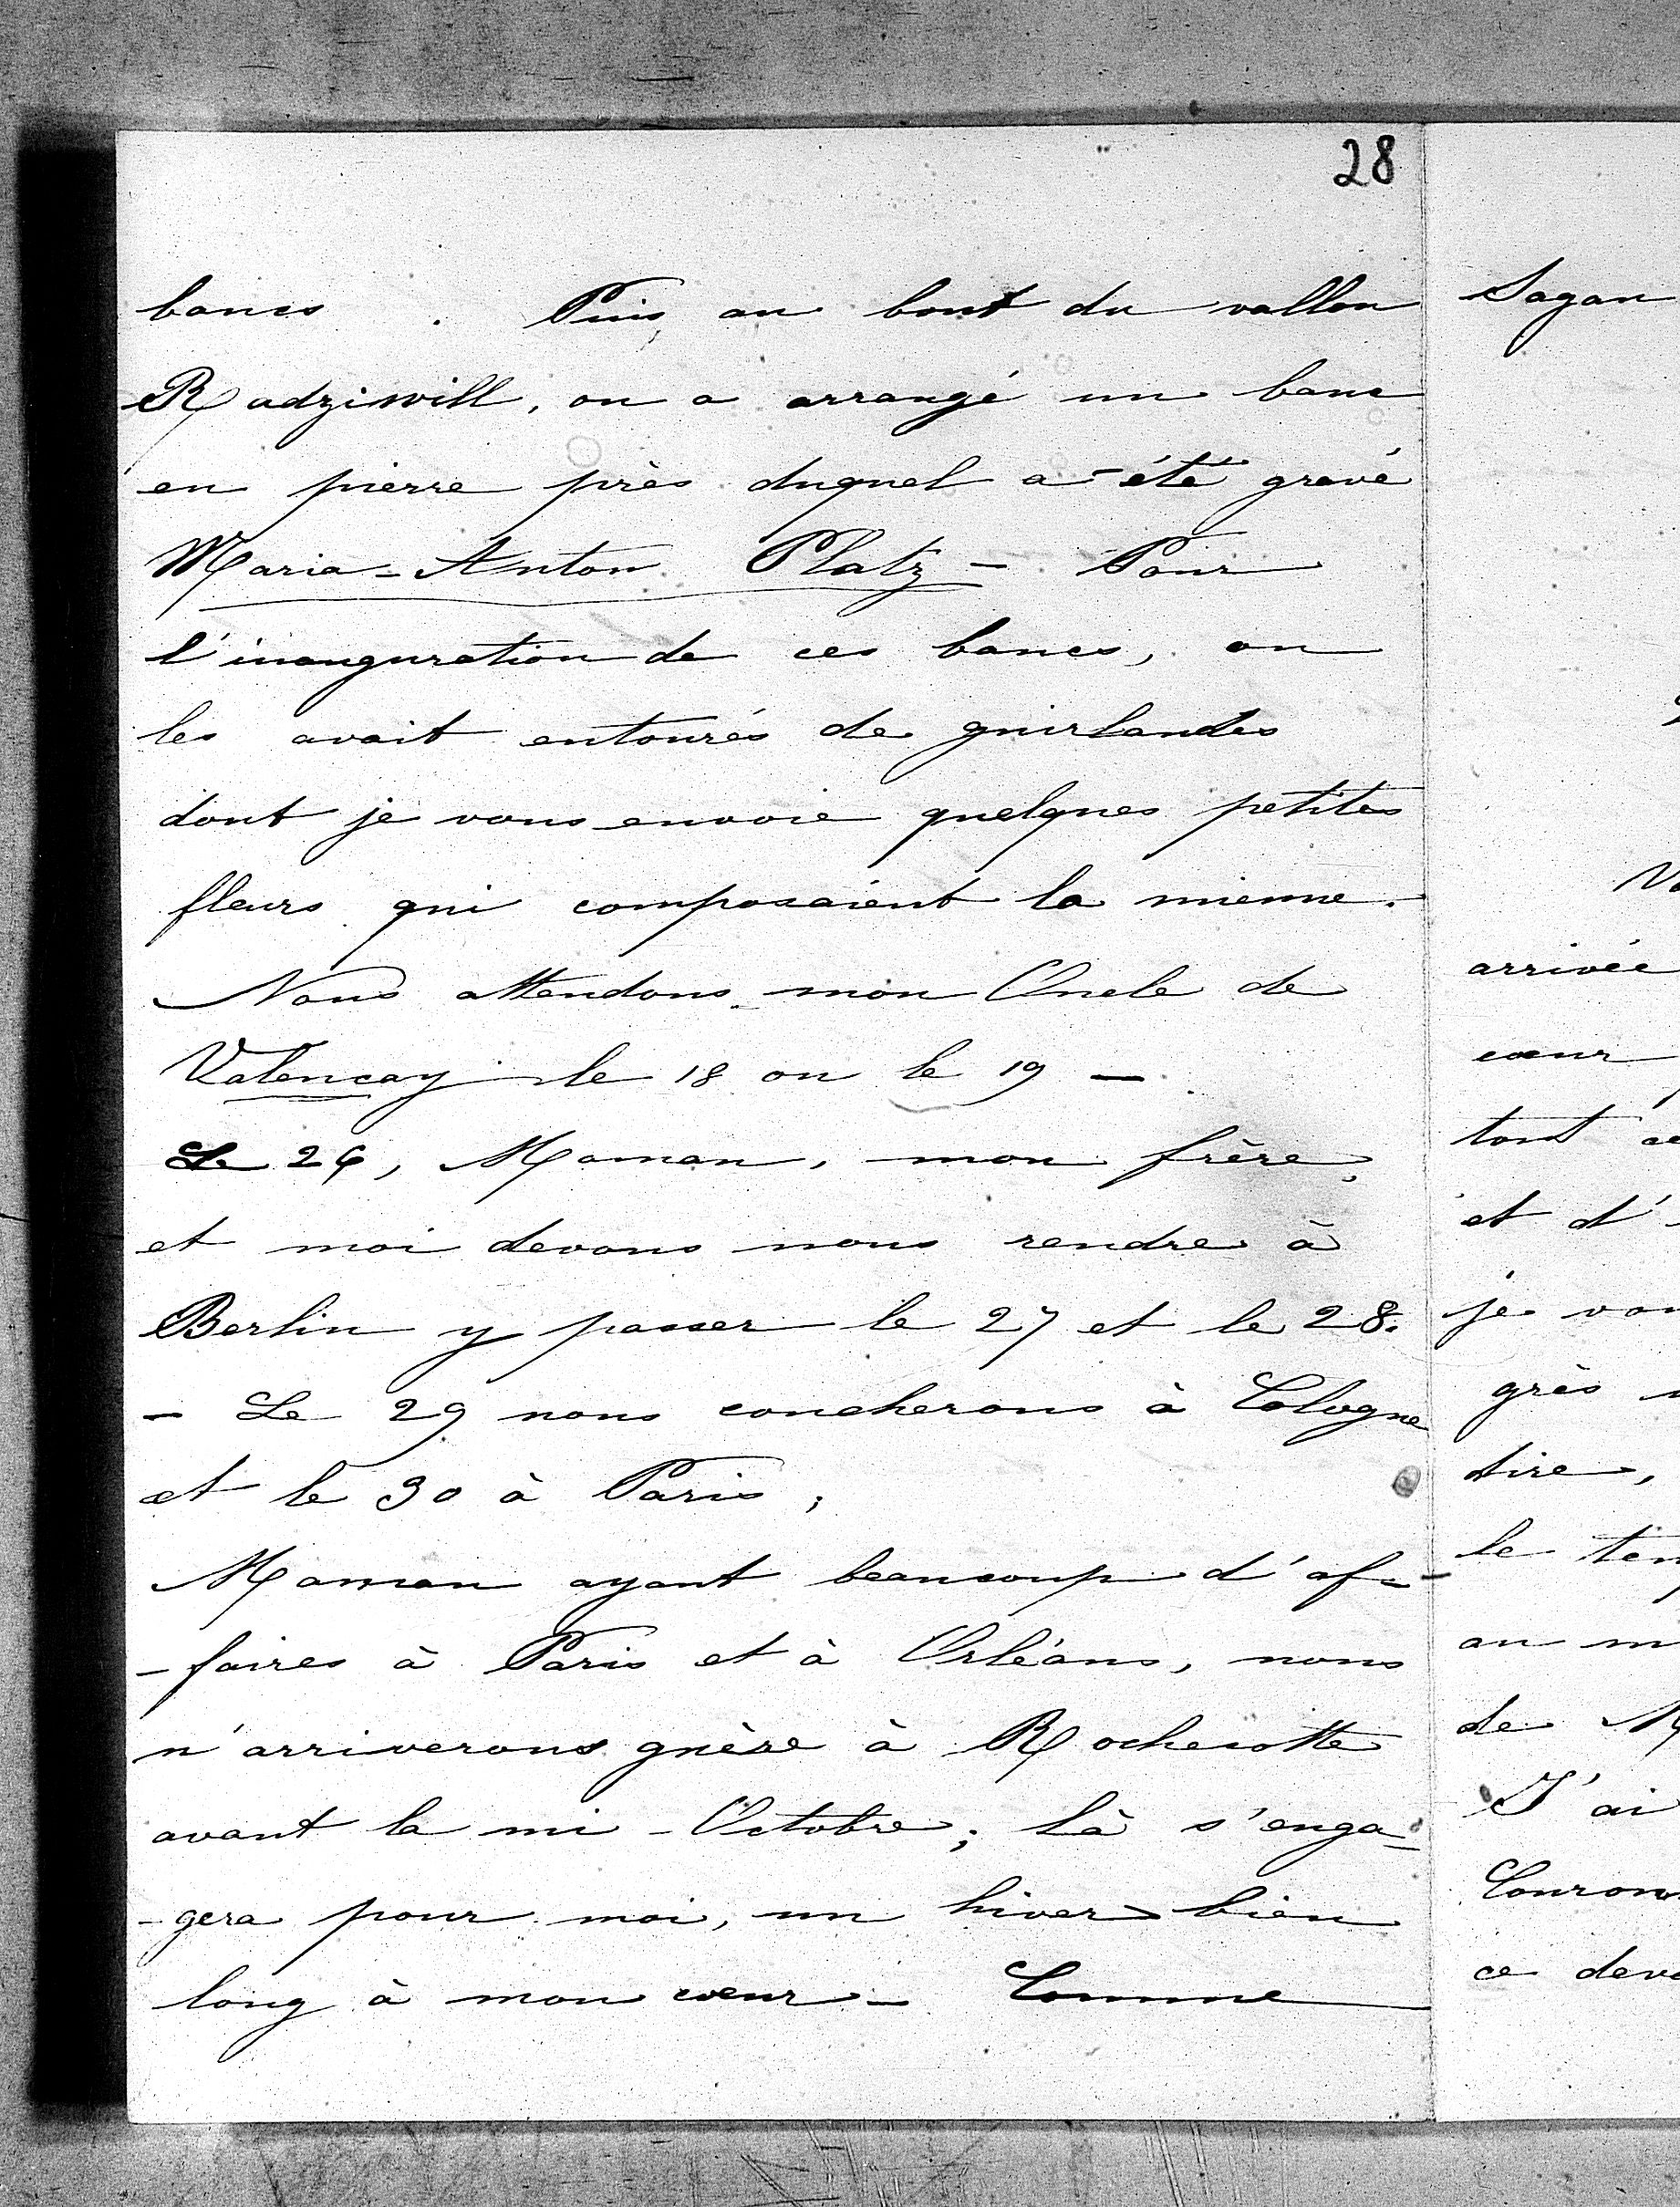 28
bancs . Puis, au bout du vallon
Radziwill, on a arrangé un banc
en pierre près duquel a été gravé
Maria-Anton Platz - Pour
l'inauguration de ces bancs, on
les avait entourés de guirlandes
dont je vous envoie quelques petites
fleurs qui composaient la mienne.
Nous attendons mon Oncle de
Valencay le 18 ou le 19 -
Le 26, Maman, mon frère,
et moi devons nous rendre à
Berlin y passer le 27 et le 28.
- Le 29 nous coucherons à Cologne
et le 30 à Paris ;
Maman ayant beaucoup d'af-
-faires à Paris et à Orléans, nous
n'arriverons guère à Rochecotte
avant la mi-Octobre ; là s'enga-
-gera pour moi, un hiver bien
long à mon cœur - Comme
Sagan
arrivée
cœur
tout ce
et d'
je vou
grès
dire,
le tem
au m
de M
J'ai
Couronn
ce deva